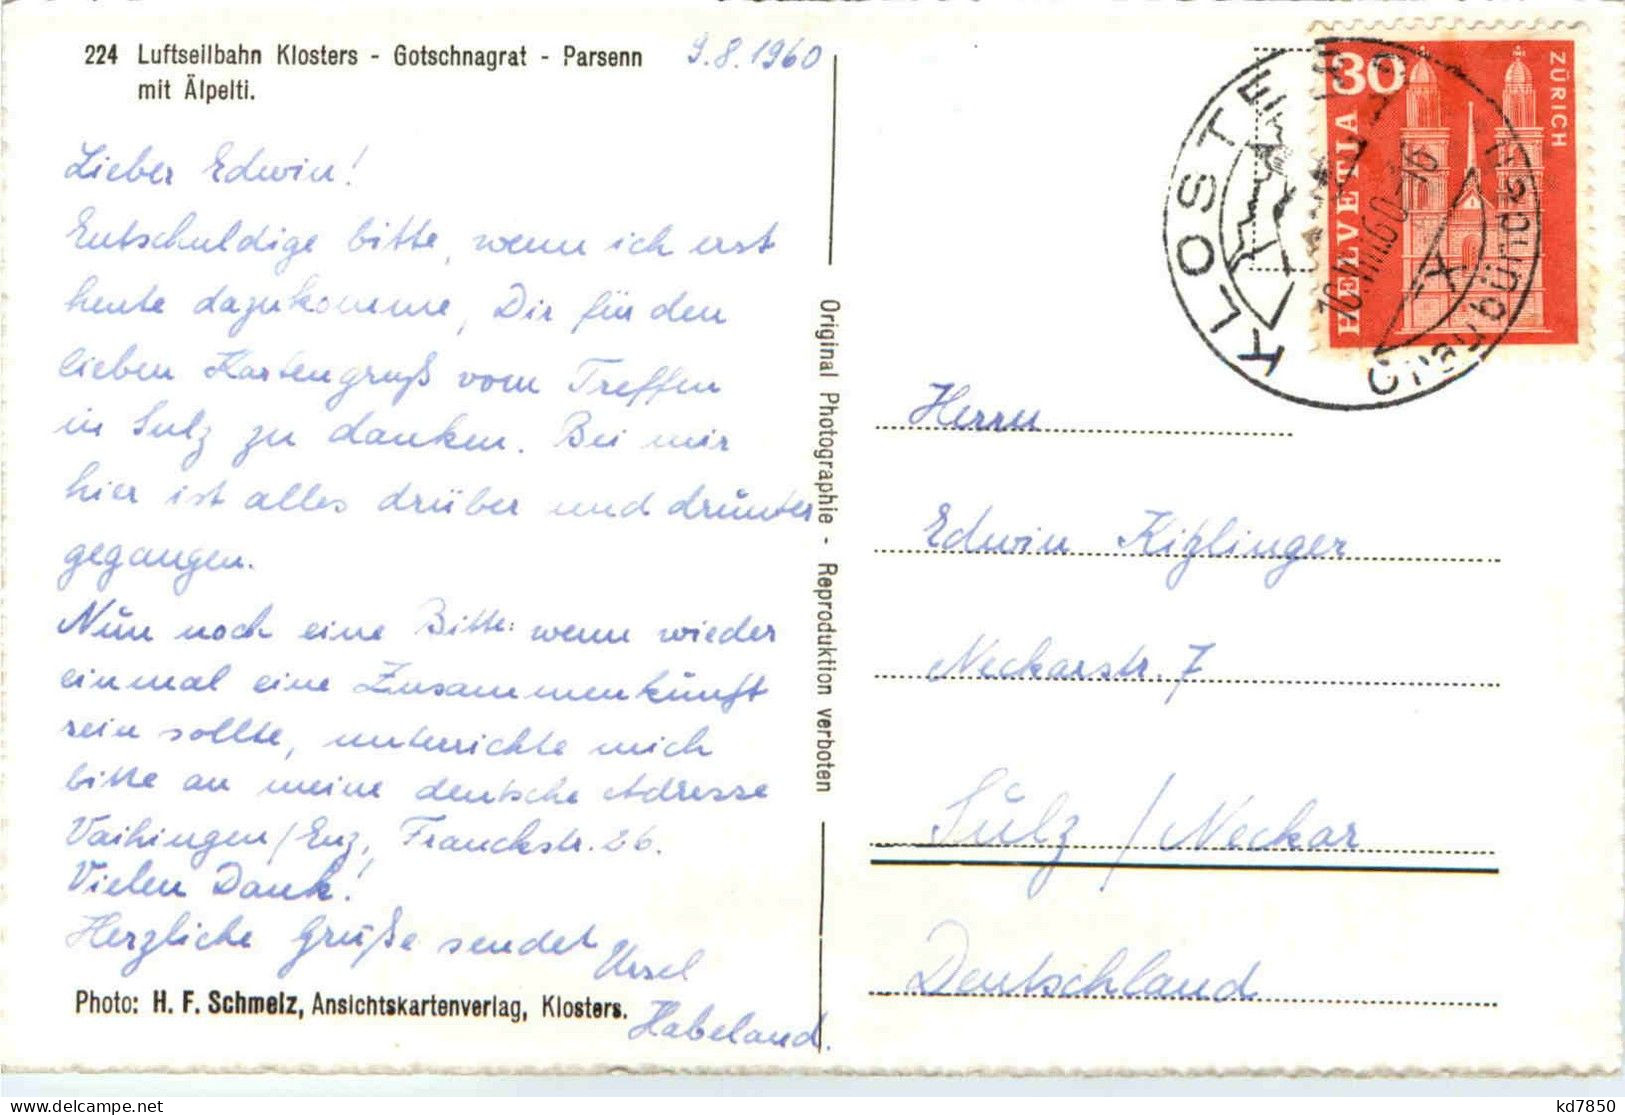 224 Luftseilbahn Klosters - Gotschnagrat - Parsenn
mit Älpelti.
9.8.1960
Lieber Edwin!
Entschuldige bitte, wenn ich erst
heute dazukomme, Dir für den
lieben Kartengruß vom Treffen
in Sulz zu danken. Bei mir
hier ist alles drüber und drunter
gegangen.
Nun noch eine Bitte: wenn wieder
einmal eine Zusammenkunft
sein sollte, unterrichte mich
bitte an meine deutsche Adresse
Vaihingen/Enz, Franckstr. 26.
Vielen Dank!
Herzliche Grüße sendet
Ursel
Habeland.
Photo: H. F. Schmelz, Ansichtskartenverlag, Klosters.
Original Photographie - Reproduktion verboten
30
HELVETIA
ZÜRICH
KLOSTERS
10.VIII.60-16
Graubünden
Herrn
Edwin Kißlinger
Neckarstr. 7
Sulz / Neckar
Deutschland
kd7850